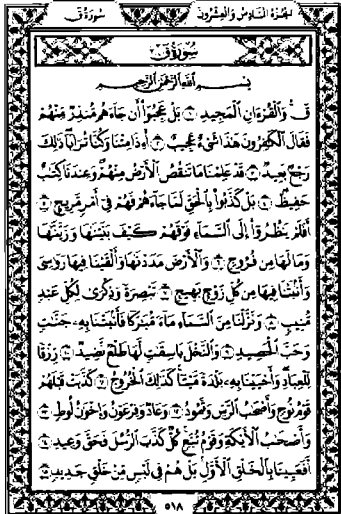 الجزء السادس والعشرون سورة ق
سورة ق
بسم الله الرحمن الرحيم
قٓ ۚ وَالْقُرْءَانِ الْمَجِيدِ ١ بَلْ عَجِبُوٓا أَن جَآءَهُم مُّنذِرٌ مِّنْهُمْ
فَقَالَ الْكَٰفِرُونَ هَٰذَا شَىْءٌ عَجِيبٌ ٢ أَءِذَا مِتْنَا وَكُنَّا تُرَابًا ۖ ذَٰلِكَ
رَجْعٌۢ بَعِيدٌ ٣ قَدْ عَلِمْنَا مَا تَنقُصُ الْأَرْضُ مِنْهُمْ ۖ وَعِندَنَا كِتَٰبٌ
حَفِيظٌۢ ٤ بَلْ كَذَّبُوا بِالْحَقِّ لَمَّا جَآءَهُمْ فَهُمْ فِىٓ أَمْرٍ مَّرِيجٍ ٥
أَفَلَمْ يَنظُرُوٓا إِلَى السَّمَآءِ فَوْقَهُمْ كَيْفَ بَنَيْنَٰهَا وَزَيَّنَّٰهَا
وَمَا لَهَا مِن فُرُوجٍ ٦ وَالْأَرْضَ مَدَدْنَٰهَا وَأَلْقَيْنَا فِيهَا رَوَٰسِىَ
وَأَنۢبَتْنَا فِيهَا مِن كُلِّ زَوْجٍۭ بَهِيجٍ ٧ تَبْصِرَةً وَذِكْرَىٰ لِكُلِّ عَبْدٍ
مُّنِيبٍ ٨ وَنَزَّلْنَا مِنَ السَّمَآءِ مَآءً مُّبَٰرَكًا فَأَنۢبَتْنَا بِهِۦ جَنَّٰتٍ
وَحَبَّ الْحَصِيدِ ٩ وَالنَّخْلَ بَاسِقَٰتٍ لَّهَا طَلْعٌ نَّضِيدٌ ١٠ رِّزْقًا
لِّلْعِبَادِ ۖ وَأَحْيَيْنَا بِهِۦ بَلْدَةً مَّيْتًا ۚ كَذَٰلِكَ الْخُرُوجُ ١١ كَذَّبَتْ قَبْلَهُمْ
قَوْمُ نُوحٍ وَأَصْحَٰبُ الرَّسِّ وَثَمُودُ ١٢ وَعَادٌ وَفِرْعَوْنُ وَإِخْوَٰنُ لُوطٍ ١٣
وَأَصْحَٰبُ الْأَيْكَةِ وَقَوْمُ تُبَّعٍ ۚ كُلٌّ كَذَّبَ الرُّسُلَ فَحَقَّ وَعِيدِ ١٤
أَفَعَيِينَا بِالْخَلْقِ الْأَوَّلِ ۚ بَلْ هُمْ فِى لَبْسٍ مِّنْ خَلْقٍ جَدِيدٍ ١٥
٥١٨